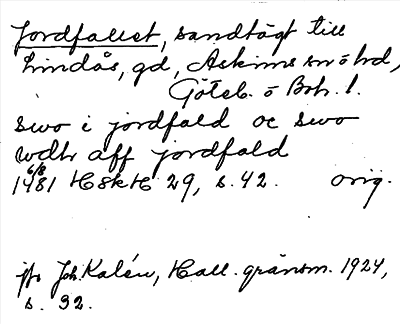 Jordfallet, sandtägt till
Lindås, gd, Askims sn o hd,
Göteb. o Boh. l.
swo i jordfald oc swo
wdhr aff jordfald
6/8
1481 HSkH 29, s. 42. orig.
jfr Joh. Kalén, Hall. gränsm. 1924,
s. 32.